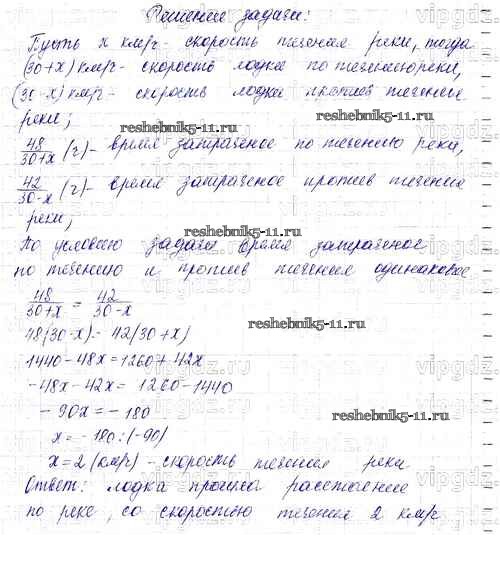 Решение задачи:
Пусть x км/ч - скорость течения реки, тогда
(30+x) км/ч - скорость лодки по течению реки,
(30-x) км/ч - скорость лодки против течения
реки;
reshebnik5-11.ru
48/30+x (ч) - время затраченое по течению реки,
42/30-x (ч) - время затраченое против течения
реки;
reshebnik5-11.ru
По условию задачи время затраченое
по течению и против течения одинаковое
48/30+x = 42/30-x
reshebnik5-11.ru
48(30-x) = 42(30+x)
1440-48x=1260+42x
-48x-42x= 1260-1440
-90x=-180
reshebnik5-11.ru
x=-180:(-90)
x=2 (км/ч) - скорость течения реки
Ответ: лодка прошла расстояние
по реке, со скоростью течения 2 км/ч
vipgdz.ru
vipgdz.ru
vipgdz.ru
vipgdz.ru
vipgdz.ru
vipgdz.ru